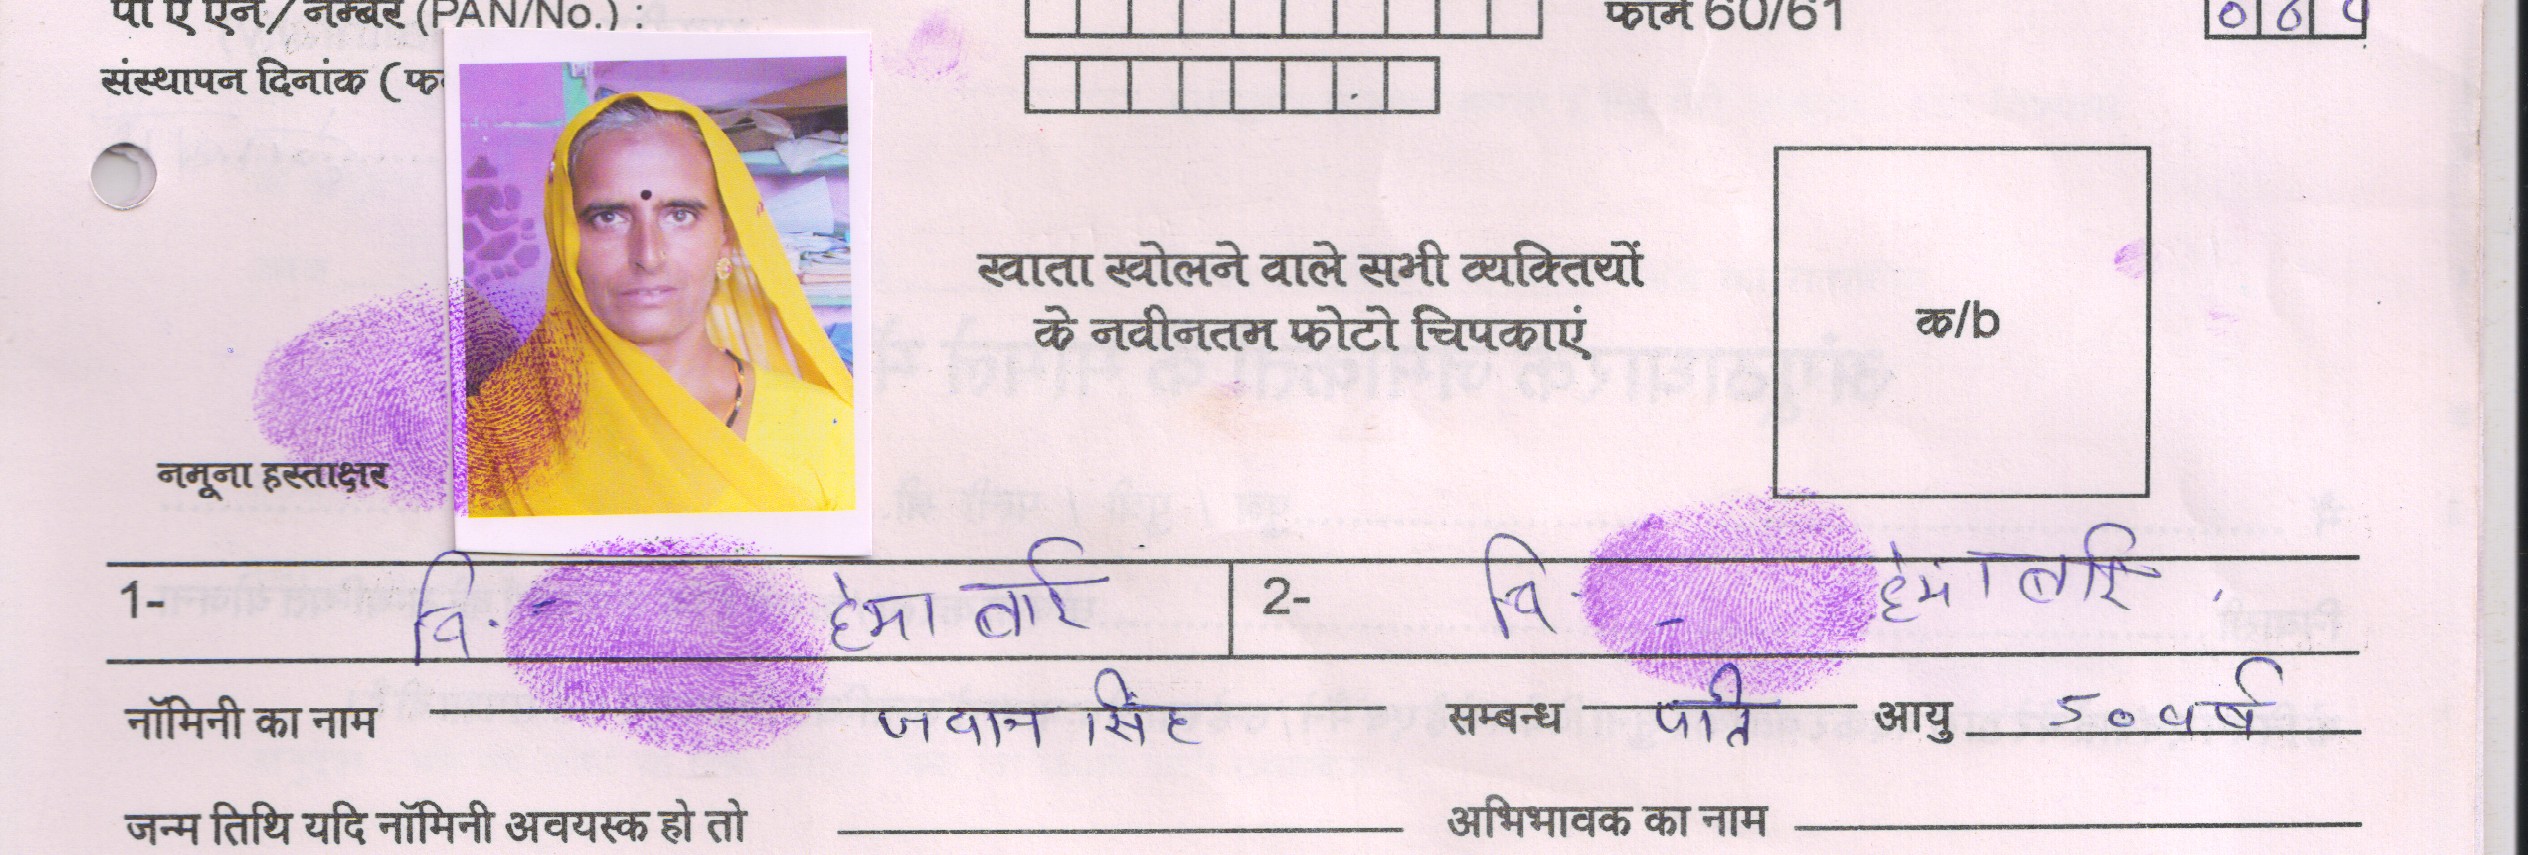 पी ए एन/नम्बर (PAN/No.) : फार्म 60/61
संस्थापन दिनांक (फ
खाता खोलने वाले सभी व्यक्तियों
के नवीनतम फोटो चिपकाएं
क/b
नमूना हस्ताक्षर
1- नि. - हेमा बाई 2- नि - हेमा बाई
नॉमिनी का नाम जवान सिंह सम्बन्ध पति आयु 50 वर्ष
जन्म तिथि यदि नॉमिनी अवयस्क हो तो अभिभावक का नाम